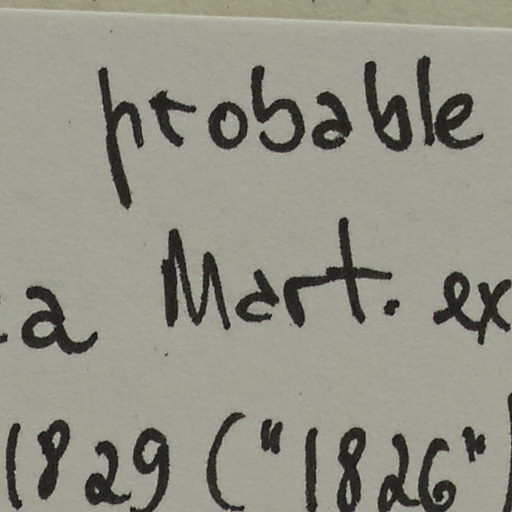 probable
a Mart. ex
1829 ("1826")